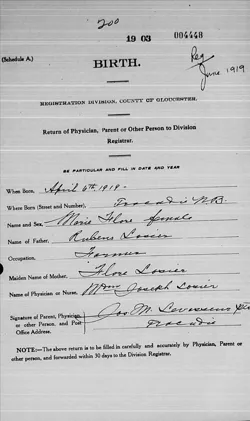 200
19 03 004448
(Schedule A.) Reg
June 1919
BIRTH.
REGISTRATION DIVISION, COUNTY OF GLOUCESTER.
Return of Physician, Parent or Other Person to Division
Registrar.
BE PARTICULAR AND FILL IN DATE AND YEAR
When Born, April 6th 1919-
Where Born (Street and Number), Tracadie N.B.
Name and Sex, Marie Flore female
Name of Father, Rubens Losier
Occupation, Farmer
Maiden Name of Mother, Flore Losier
Name of Physician or Nurse, Mme Joseph Losier
Signature of Parent, Physician
or other Person, and Post Jos M. Levasseur
Office Address. Tracadie
NOTE:—The above return is to be filled in carefully and accurately by Physician, Parent or
other person, and forwarded within 30 days to the Division Registrar.